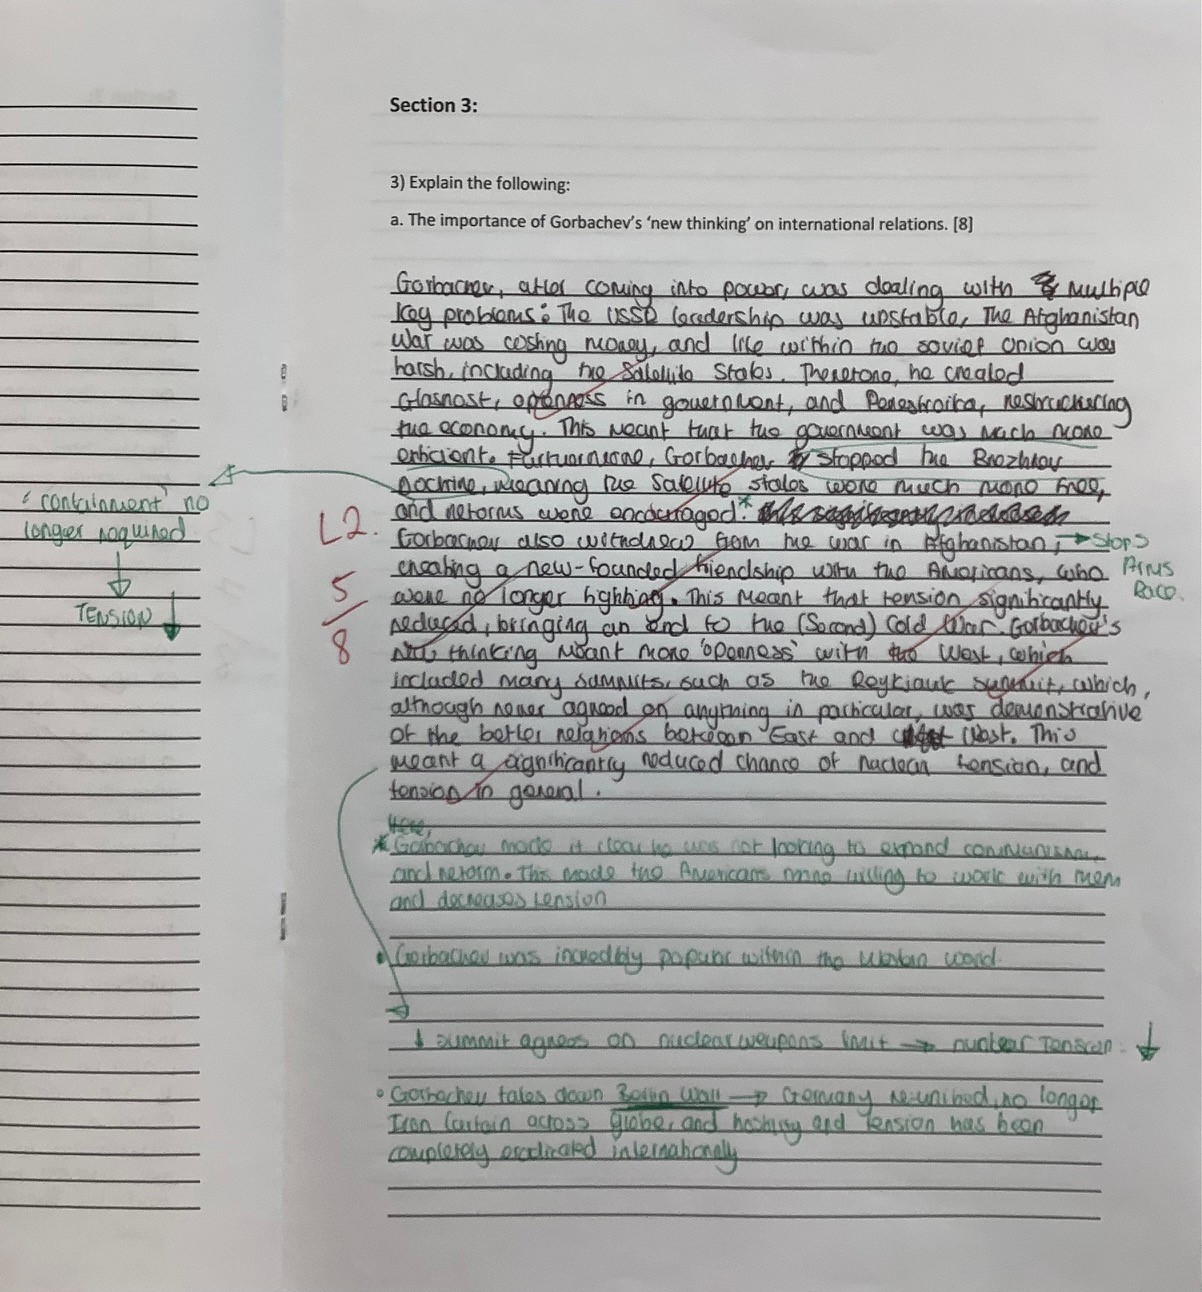 Section 3:
3) Explain the following:
a. The importance of Gorbachev's 'new thinking' on international relations. [8]
Gorbachev, after coming into power, was dealing with multiple
key problems: The USSR leadership was unstable, The Afghanistan
War was costing money, and life within the soviet Union was
harsh, including the Satellite States. Therefore, he created
Glasnost, openness in government, and Perestroika, restructuring
the economy. This meant that the government was much more
efficient. Furthermore, Gorbachev stopped the Brezhnev
Doctrine, meaning the Satellite states were much more free,
and reforms were encouraged.*
Gorbachev also withdrew from the war in Afghanistan, → Stops
Arms
Race.
creating a new-founded friendship with the Americans, who
were no longer fighting. This meant that tension significantly
reduced, bringing an end to the (Second) Cold War. Gorbachev's
New thinking meant more 'openness' with the West, which
included many summits, such as the Reykjavik summit, which,
although never agreed on anything in particular, was demonstrative
of the better relations between East and West. This
meant a significantly reduced chance of nuclear tension, and
tension in general.
'containment' no
longer required
↓
TENSION ↓
L2.
5
8
* Gorbachev made it clear he was not looking to expand communism,
and reform. This made the Americans more willing to work with them
and decreases tension
• Gorbachev was incredibly popular within the Western world.
↓ summit agrees on nuclear weapons limit → nuclear Tension ↓
• Gorbachev takes down Berlin Wall → Germany re-unified, no longer
Iron Curtain across globe, and hostility and tension has been
completely eradicated internationally